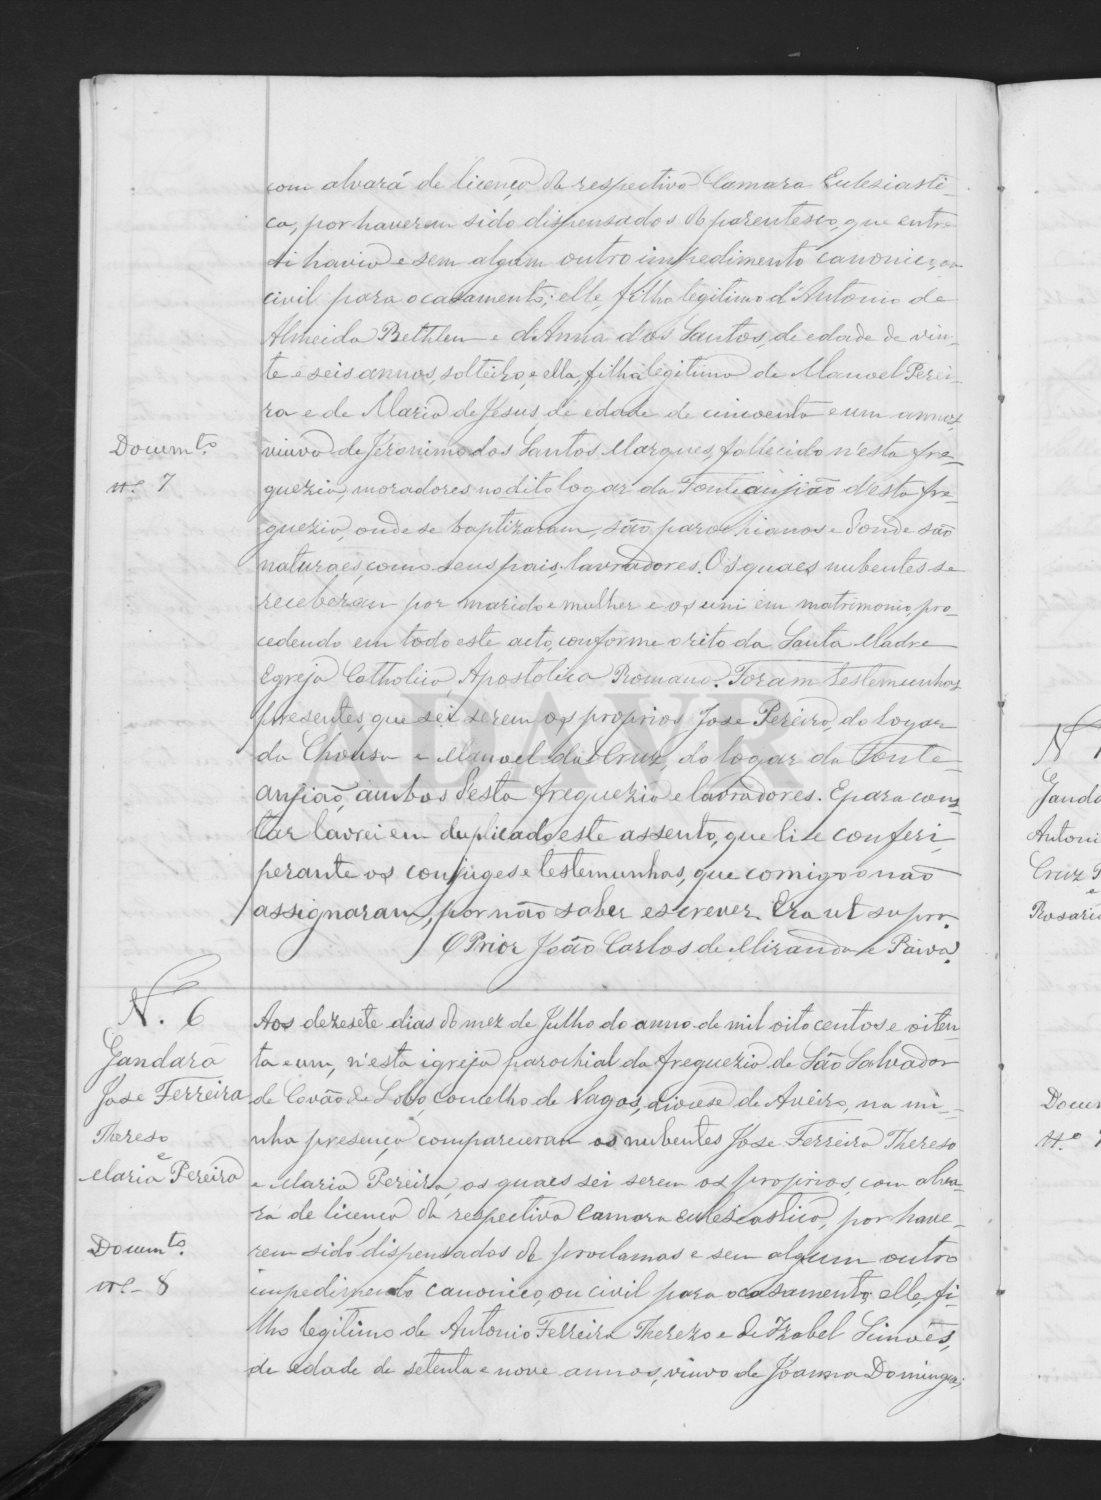 com alvará de licença da respectiva Camara Eclesiasti-
ca, por haverem sido dispensados do parentesco, que entre
si havia e sem algum outro impedimento canonico, ou
civil para o casamento; elle, filho legitimo d'Antonio de
Almeida Bethlem e d'Anna dos Santos, de edade de vin-
te e seis annos, solteiro, e ella, filha legitima de Manoel Perei-
ra e de Maria de Jesus, de edade de cincoenta e um annos,
viuva de Jeronimo dos Santos Marques, fallecido n'esta fre-
guezia, moradores no dito logar da Fonte anjião d'esta fre-
guezia, onde se baptizaram, são parochianos e donde são
naturaes, como seus pais, lavradores. Os quaes nubentes se
receberam por marido e mulher e os uni em matrimonio, pro-
cedendo em todo este acto, conforme o rito da Santa Madre
Egreja Catholica, Apostolica Romana. Foram testemunhas
presentes, que sei serem os proprios Jose Pereira, do logar
da Chousa e Manoel da Cruz, do logar da Fonte-
anjião, ambos desta freguezia e lavradores. E para cons-
tar lavrei em duplicado este assento, que li e conferi
perante os conjuges e testemunhas, que comigo o não
assignaram, por não saber escrever. Era ut supra.
O Prior João Carlos de Miranda e Paiva.
Docum.to
n.º 7
N. 6
Gandara
Jose Ferreira
Thereso
e
Maria Pereira
Docum.to
n.º 8
Aos dezesete dias do mez de Julho do anno de mil oito centos e oiten
ta e um, n'esta igreja parochial da freguezia de São Salvador
de Covão de Lobo, concelho de Vagos, diocese de Aveiro, na mi-
nha presença compareceram os nubentes Jose Ferreira Thereso
e Maria Pereira, os quaes sei serem os proprios, com alva-
rá de licença da respectiva Camara eclesiastica, por have-
rem sido dispensados de proclamas e sem algum outro
impedimento canonico, ou civil para o casamento; elle, fi-
lho legitimo de Antonio Ferreira Therezo e de Izabel Simões,
de edade de setenta e nove annos, viuvo de Joanna Domingues;
Gand
Antoni
Cruz P
e
Rosari
Docum
n.º
ADAVR